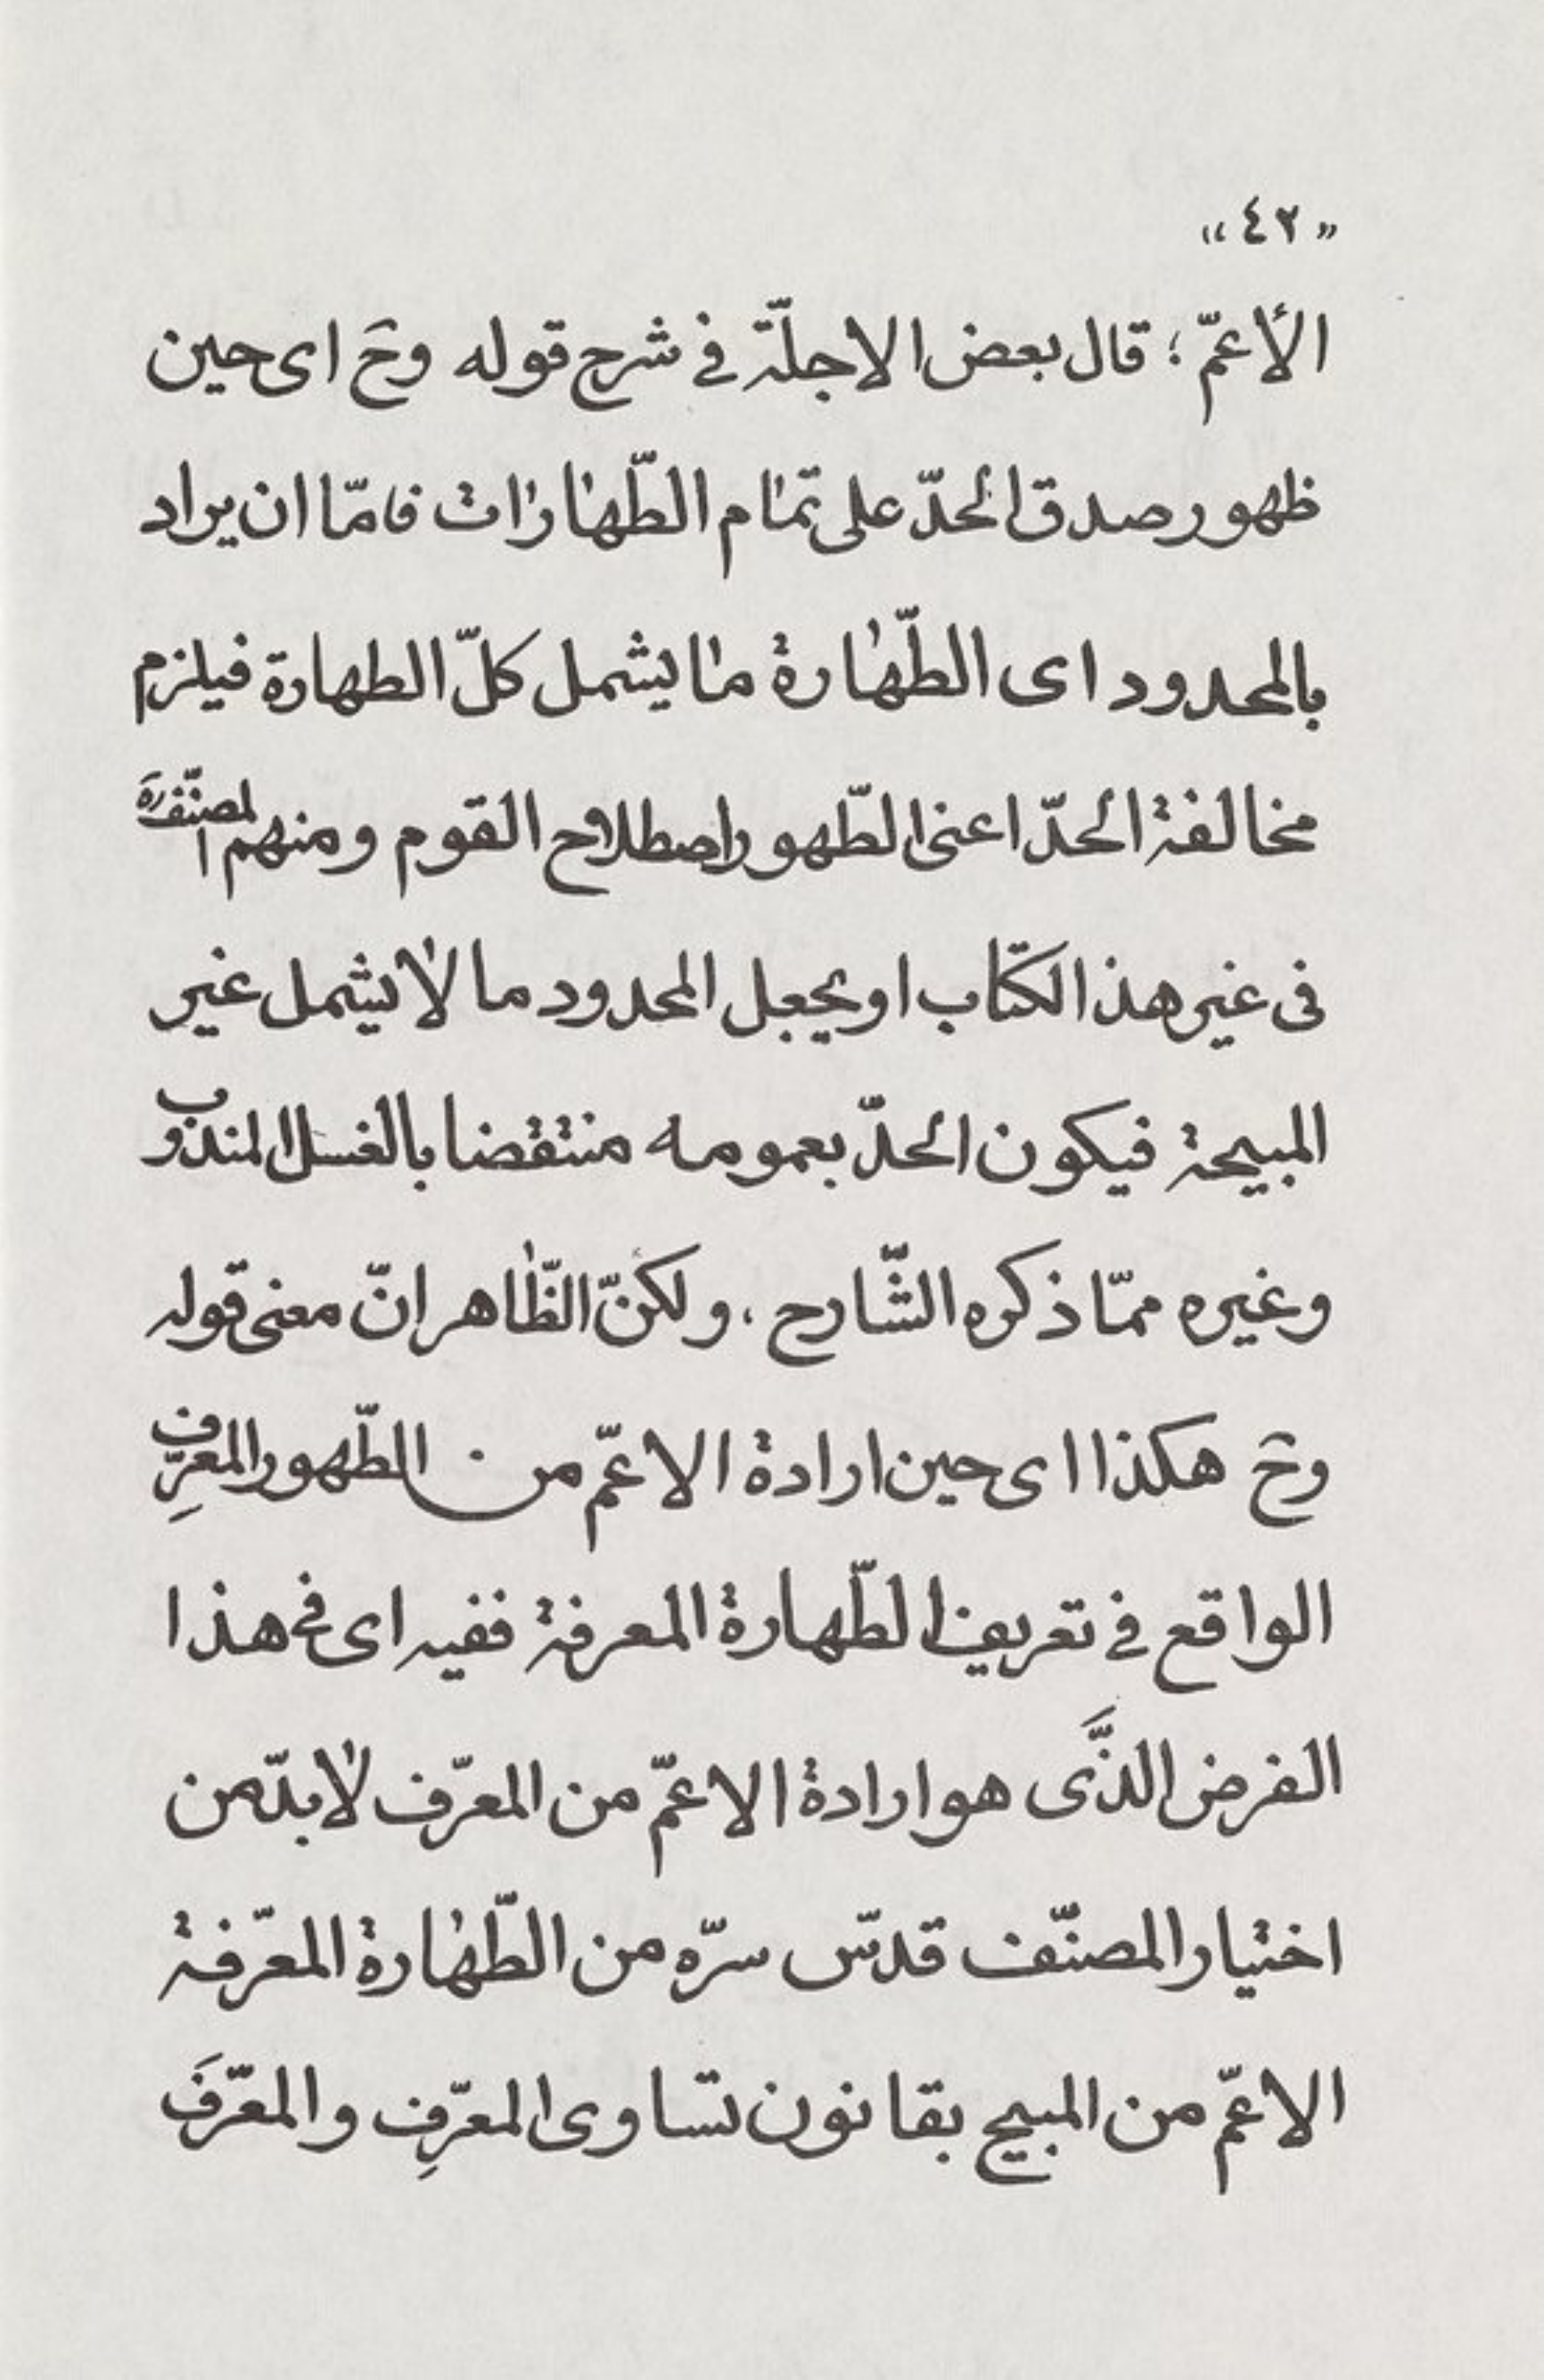 « ٤٢ »
الأعمّ؛ قال بعض الاجلّة في شرح قوله وحَ اى حين
ظهور صدق الحدّ على تمام الطّهارات فامّا ان يراد
بالمحدود اى الطّهارة ما يشمل كلّ الطهارة فيلزم
مخالفة الحدّ اعنى الطّهور اصطلاح القوم ومنهم المصنّف ره
فى غير هذا الكتاب او يجعل المحدود ما لا يشمل غير
المبيحة فيكون الحدّ بعمومه منتقضا بالغسل المندوب
وغيره ممّا ذكره الشّارح ، ولكنّ الظّاهر انّ معنى قوله
وحَ هكذا اى حين ارادة الاعمّ من الطّهور المعرِّف
الواقع في تعريف الطّهارة المعرفة ففيه اى في هذا
الفرض الذَّى هو ارادة الاعمّ من المعرّف لا بدّ من
اختيار المصنّف قدّس سرّه من الطّهارة المعرّفة
الاعمّ من المبيح بقانون تساوى المعرّفِ والمعرّفَ